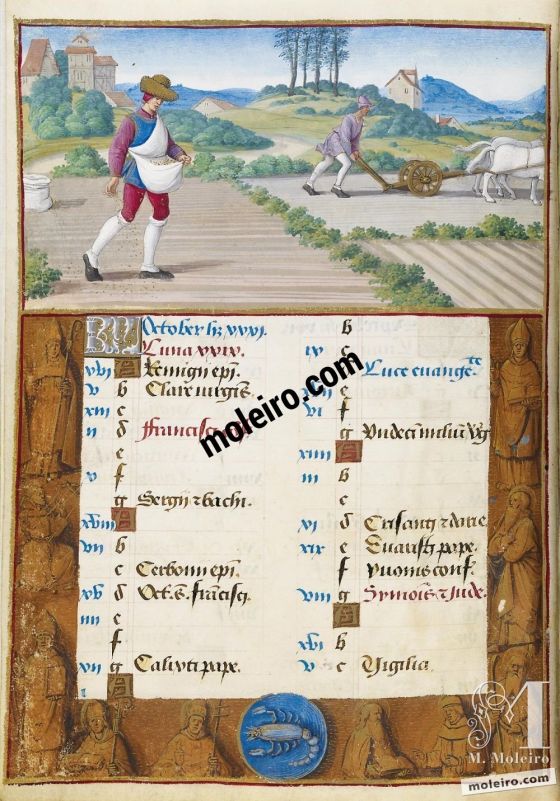 KL October hz xxxi.
Luna xxix.
xvi A Remigii epi.
v b Clare virgīs.
xiii c
ii d Francisci
e
v f
g Sergii ⁊ bachi.
xviii A
vii b
c Cerbonii epi.
xv d Oct. S. francisci.
iiii e
f
xii g Calixti pape.
i A
b
ix c
Luce euange te
e
vi f
g Undecī miliū Vg
xiiii A
iii b
c
xi d Crisanti ⁊ darie
xix e Euaristi pape.
f yuonis conf.
viii g Symonis ⁊ Jude.
A
xvi b
v c Vigilia.
moleiro.com
M. Moleiro
moleiro.com